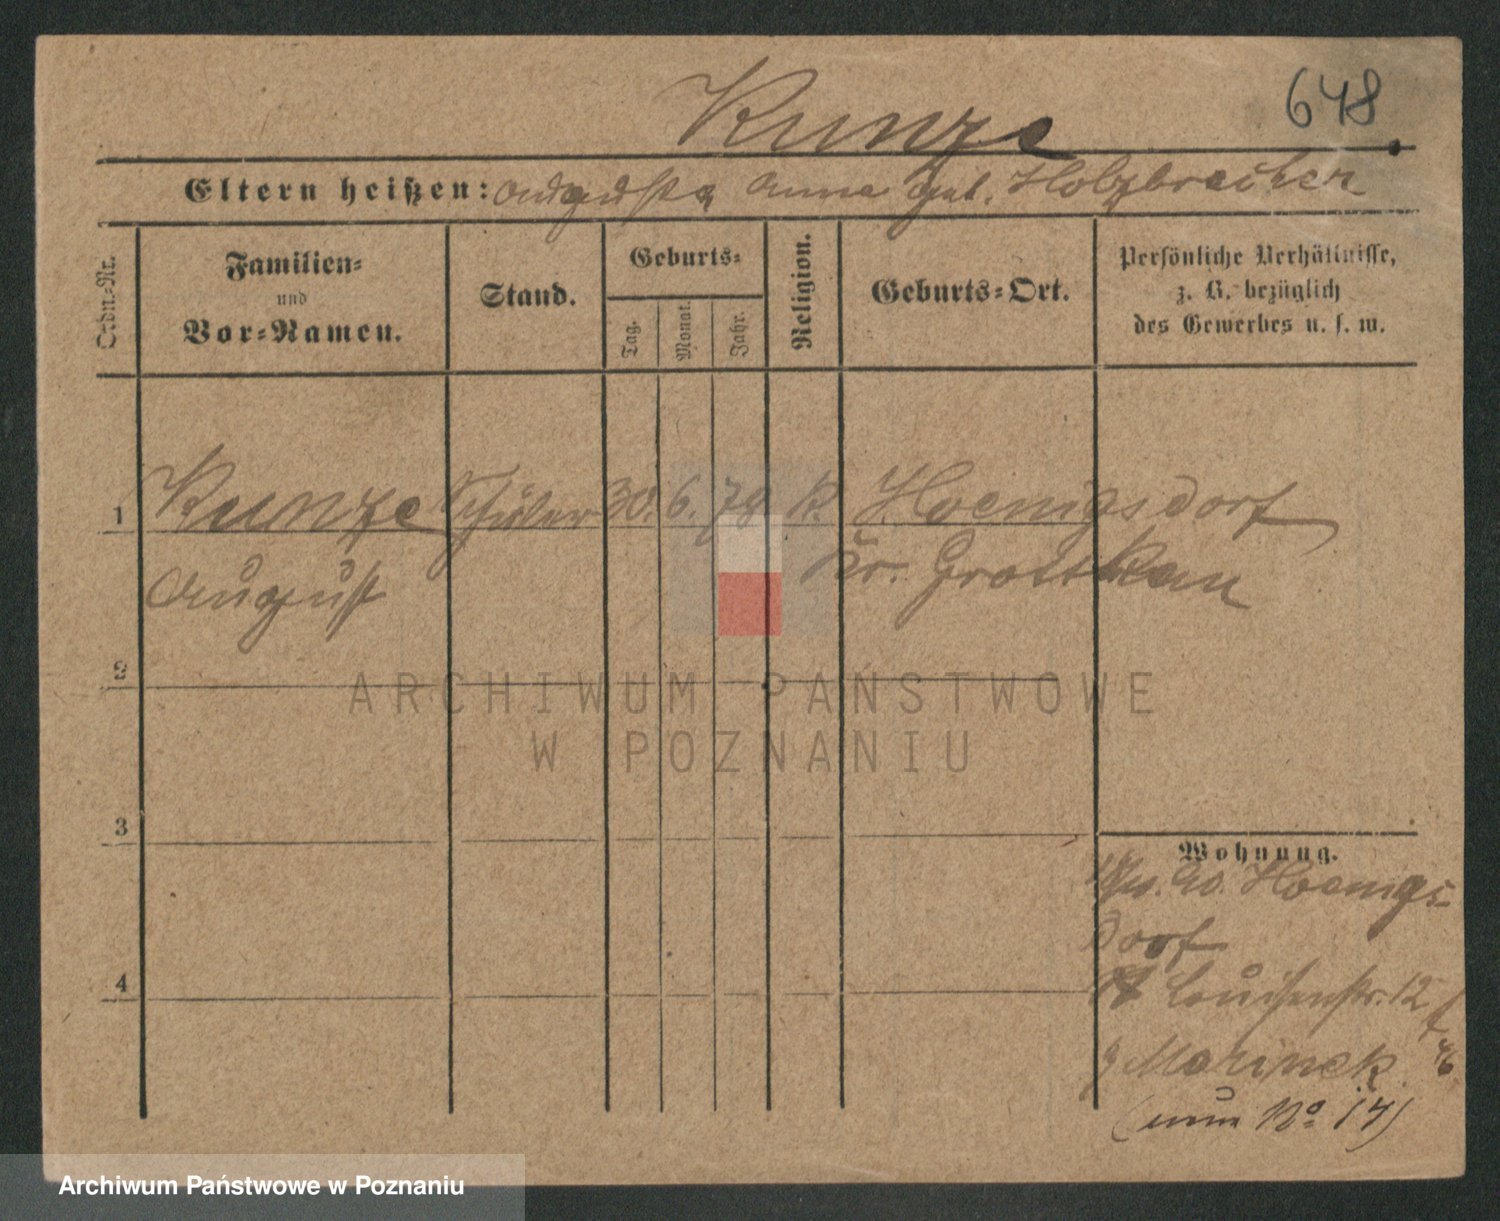 Kunze
648
Eltern heißen: Auguste Anna geb. Holzbrecher
Ordn.-Nr.
Familien-
und
Vor-Namen.
Stand.
Geburts-
Tag.
Monat.
Jahr.
Religion.
Geburts-Ort.
Persönliche Verhältnisse,
z. B. bezüglich
des Gewerbes u. s. w.
1 Kunze Schüler 30. 6. 79 K. Hoenigsdorf
August Kr. Grottkau
2
3
4
Wohnung.
90. Hoenigs-
dorf
Louisenstr. 12
Marinek
46
(nun No. 17)
ARCHIWUM PAŃSTWOWE
W POZNANIU
Archiwum Państwowe w Poznaniu